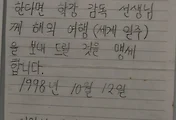 한다면 허강 감독 선생님
께 해외 여행(세계 일주)
을 보내 드릴 것을 맹세
합니다.
1998년 10월 12일